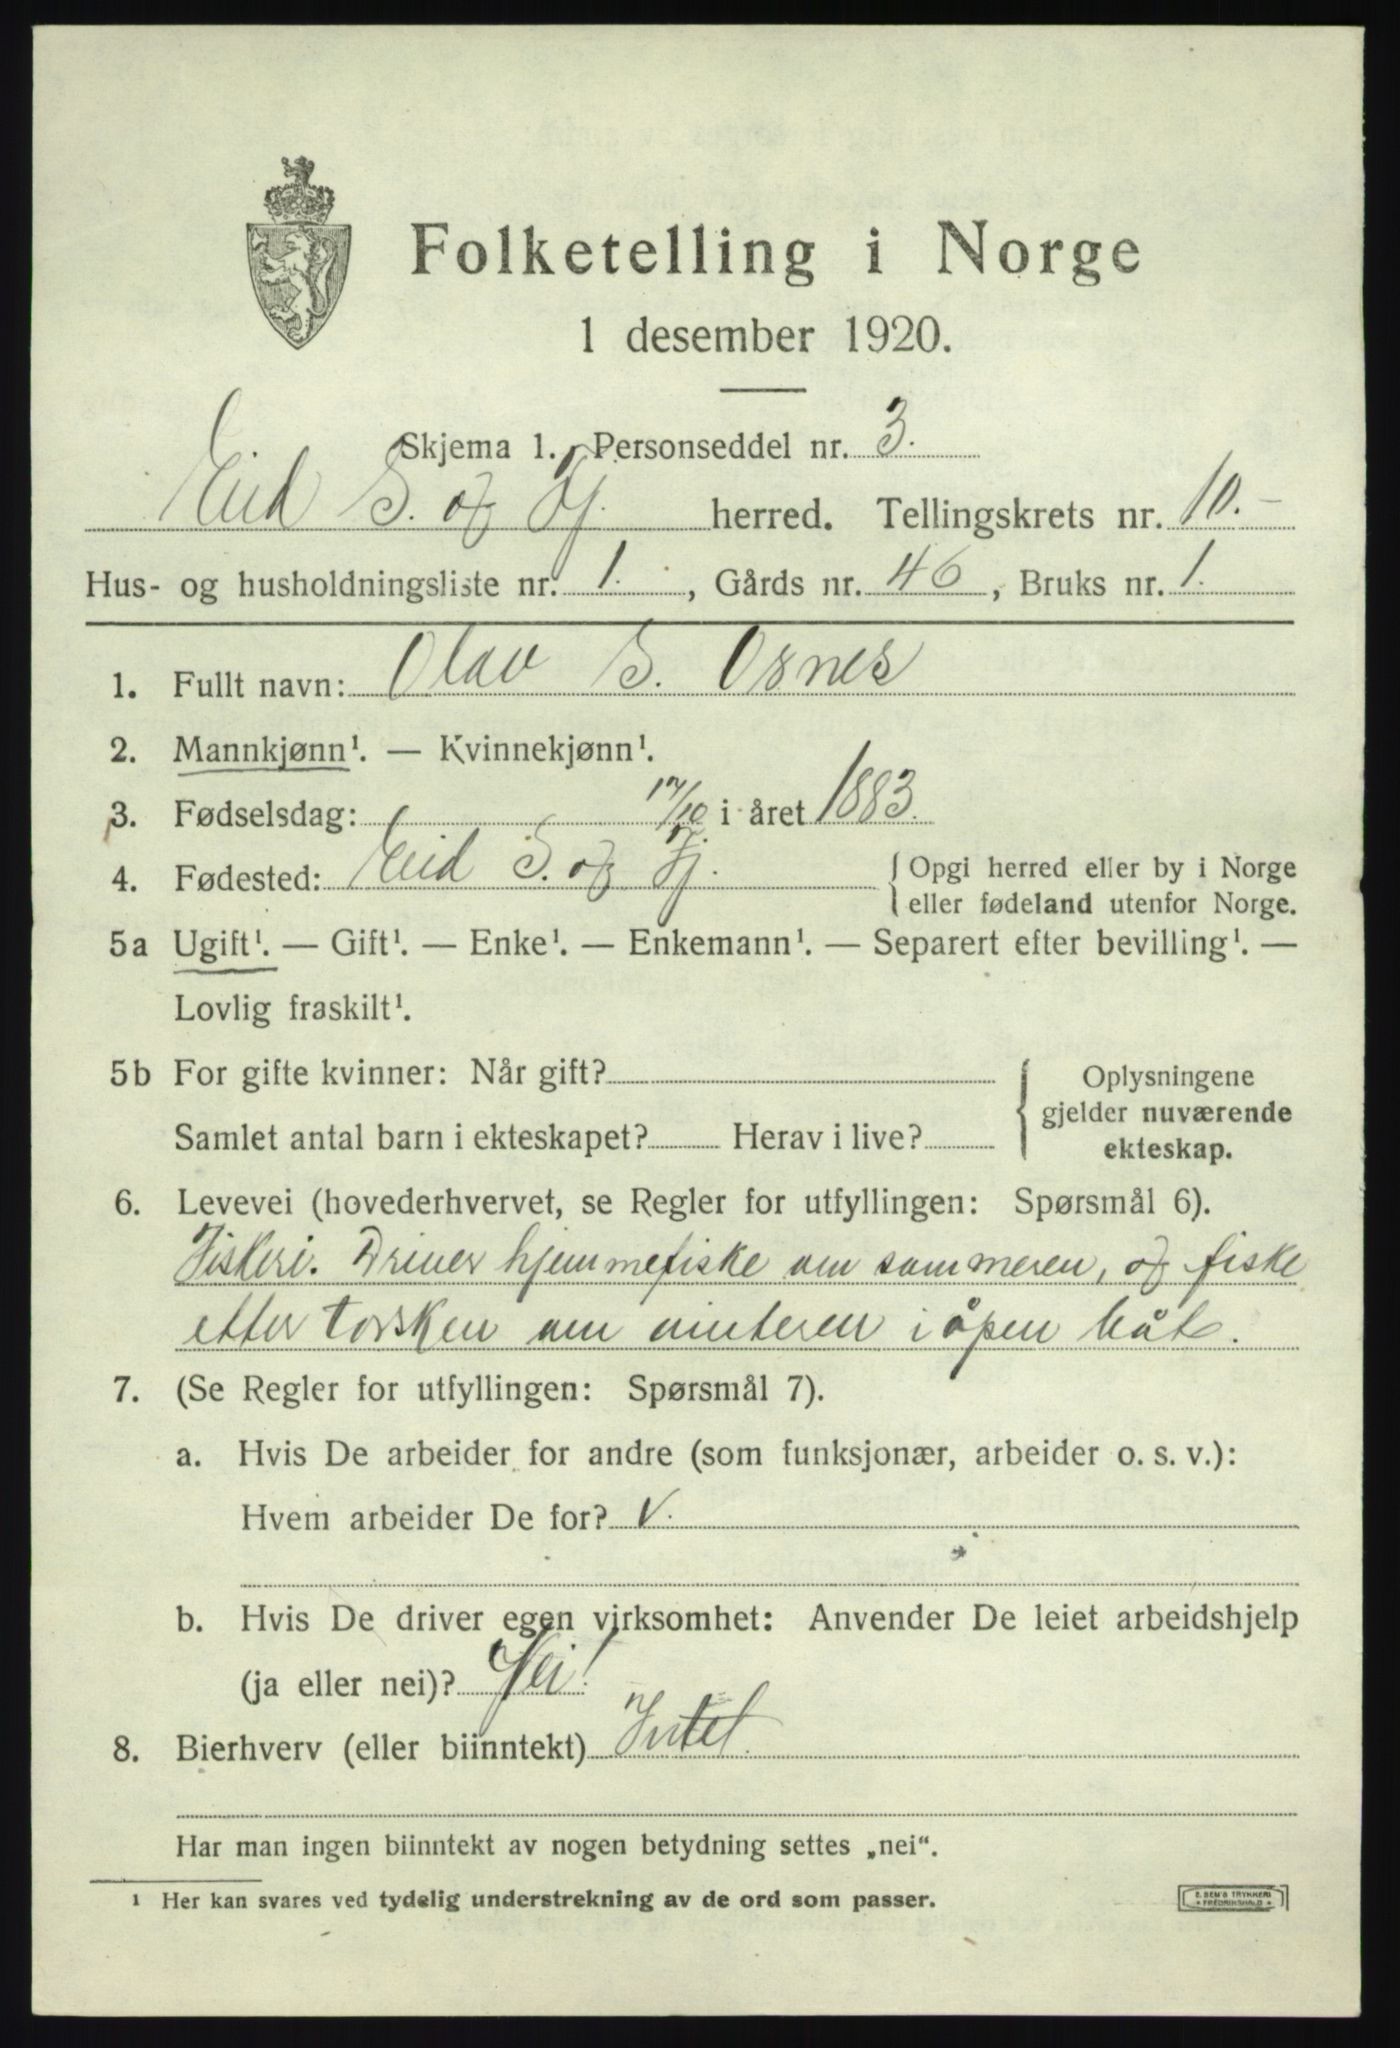 Folketelling i Norge
1 desember 1920.
Skjema 1. Personseddel nr. 3.
Eid S. og Fj. herred. Tellingskrets nr. 10.-
Hus- og husholdningsliste nr. 1. , Gårds nr. 46 , Bruks nr. 1.
1. Fullt navn: Olav S. Osnes
2. Mannkjønn¹. — Kvinnekjønn¹.
3. Fødselsdag: 17/10 i året 1883.
4. Fødested: Eid S. og Fj. { Opgi herred eller by i Norge
eller fødeland utenfor Norge.
5a Ugift¹. — Gift¹. — Enke¹. — Enkemann¹. — Separert efter bevilling¹. —
Lovlig fraskilt¹.
5b For gifte kvinner: Når gift? { Oplysningene
gjelder nuværende
Samlet antal barn i ekteskapet? Herav i live? ekteskap.
6. Levevei (hovederhvervet, se Regler for utfyllingen: Spørsmål 6).
Fiskeri. Driver hjemmefiske om sommeren, og fiske
etter torsken om vinteren i åpen båt.
7. (Se Regler for utfyllingen: Spørsmål 7).
a. Hvis De arbeider for andre (som funksjonær, arbeider o. s. v.):
Hvem arbeider De for? v.
b. Hvis De driver egen virksomhet: Anvender De leiet arbeidshjelp
(ja eller nei)? Nei!
8. Bierhverv (eller biinntekt) Intet.
Har man ingen biinntekt av nogen betydning settes „nei“.
¹ Her kan svares ved tydelig understrekning av de ord som passer.
E. SEM'S TRYKKERI
• FREDRIKSHALD •